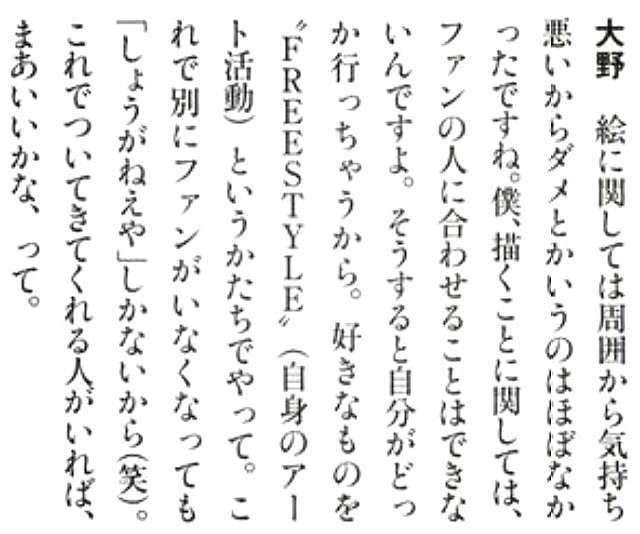 大野　絵に関しては周囲から気持ち
悪いからダメとかいうのはほぼなか
ったですね。僕、描くことに関しては、
ファンの人に合わせることはできな
いんですよ。そうすると自分がどっ
か行っちゃうから。好きなものを
〝FREESTYLE〟（自身のアー
ト活動）というかたちでやって。こ
れで別にファンがいなくなっても
「しょうがねえや」しかないから（笑）。
これでついてきてくれる人がいれば、
まあいいかな、って。